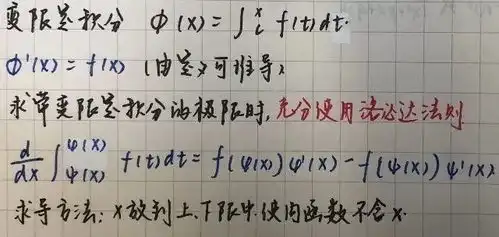 变限定积分 Φ(x) = ∫_c^x f(t)dt.
Φ'(x) = f(x) (由定义可推导)
求带变限定积分的极限时, 充分使用洛必达法则
d/dx ∫_{ψ(x)}^{φ(x)} f(t)dt = f(φ(x))φ'(x) - f(ψ(x))ψ'(x)
求导方法: x放到上.下限中.使内函数不含x.